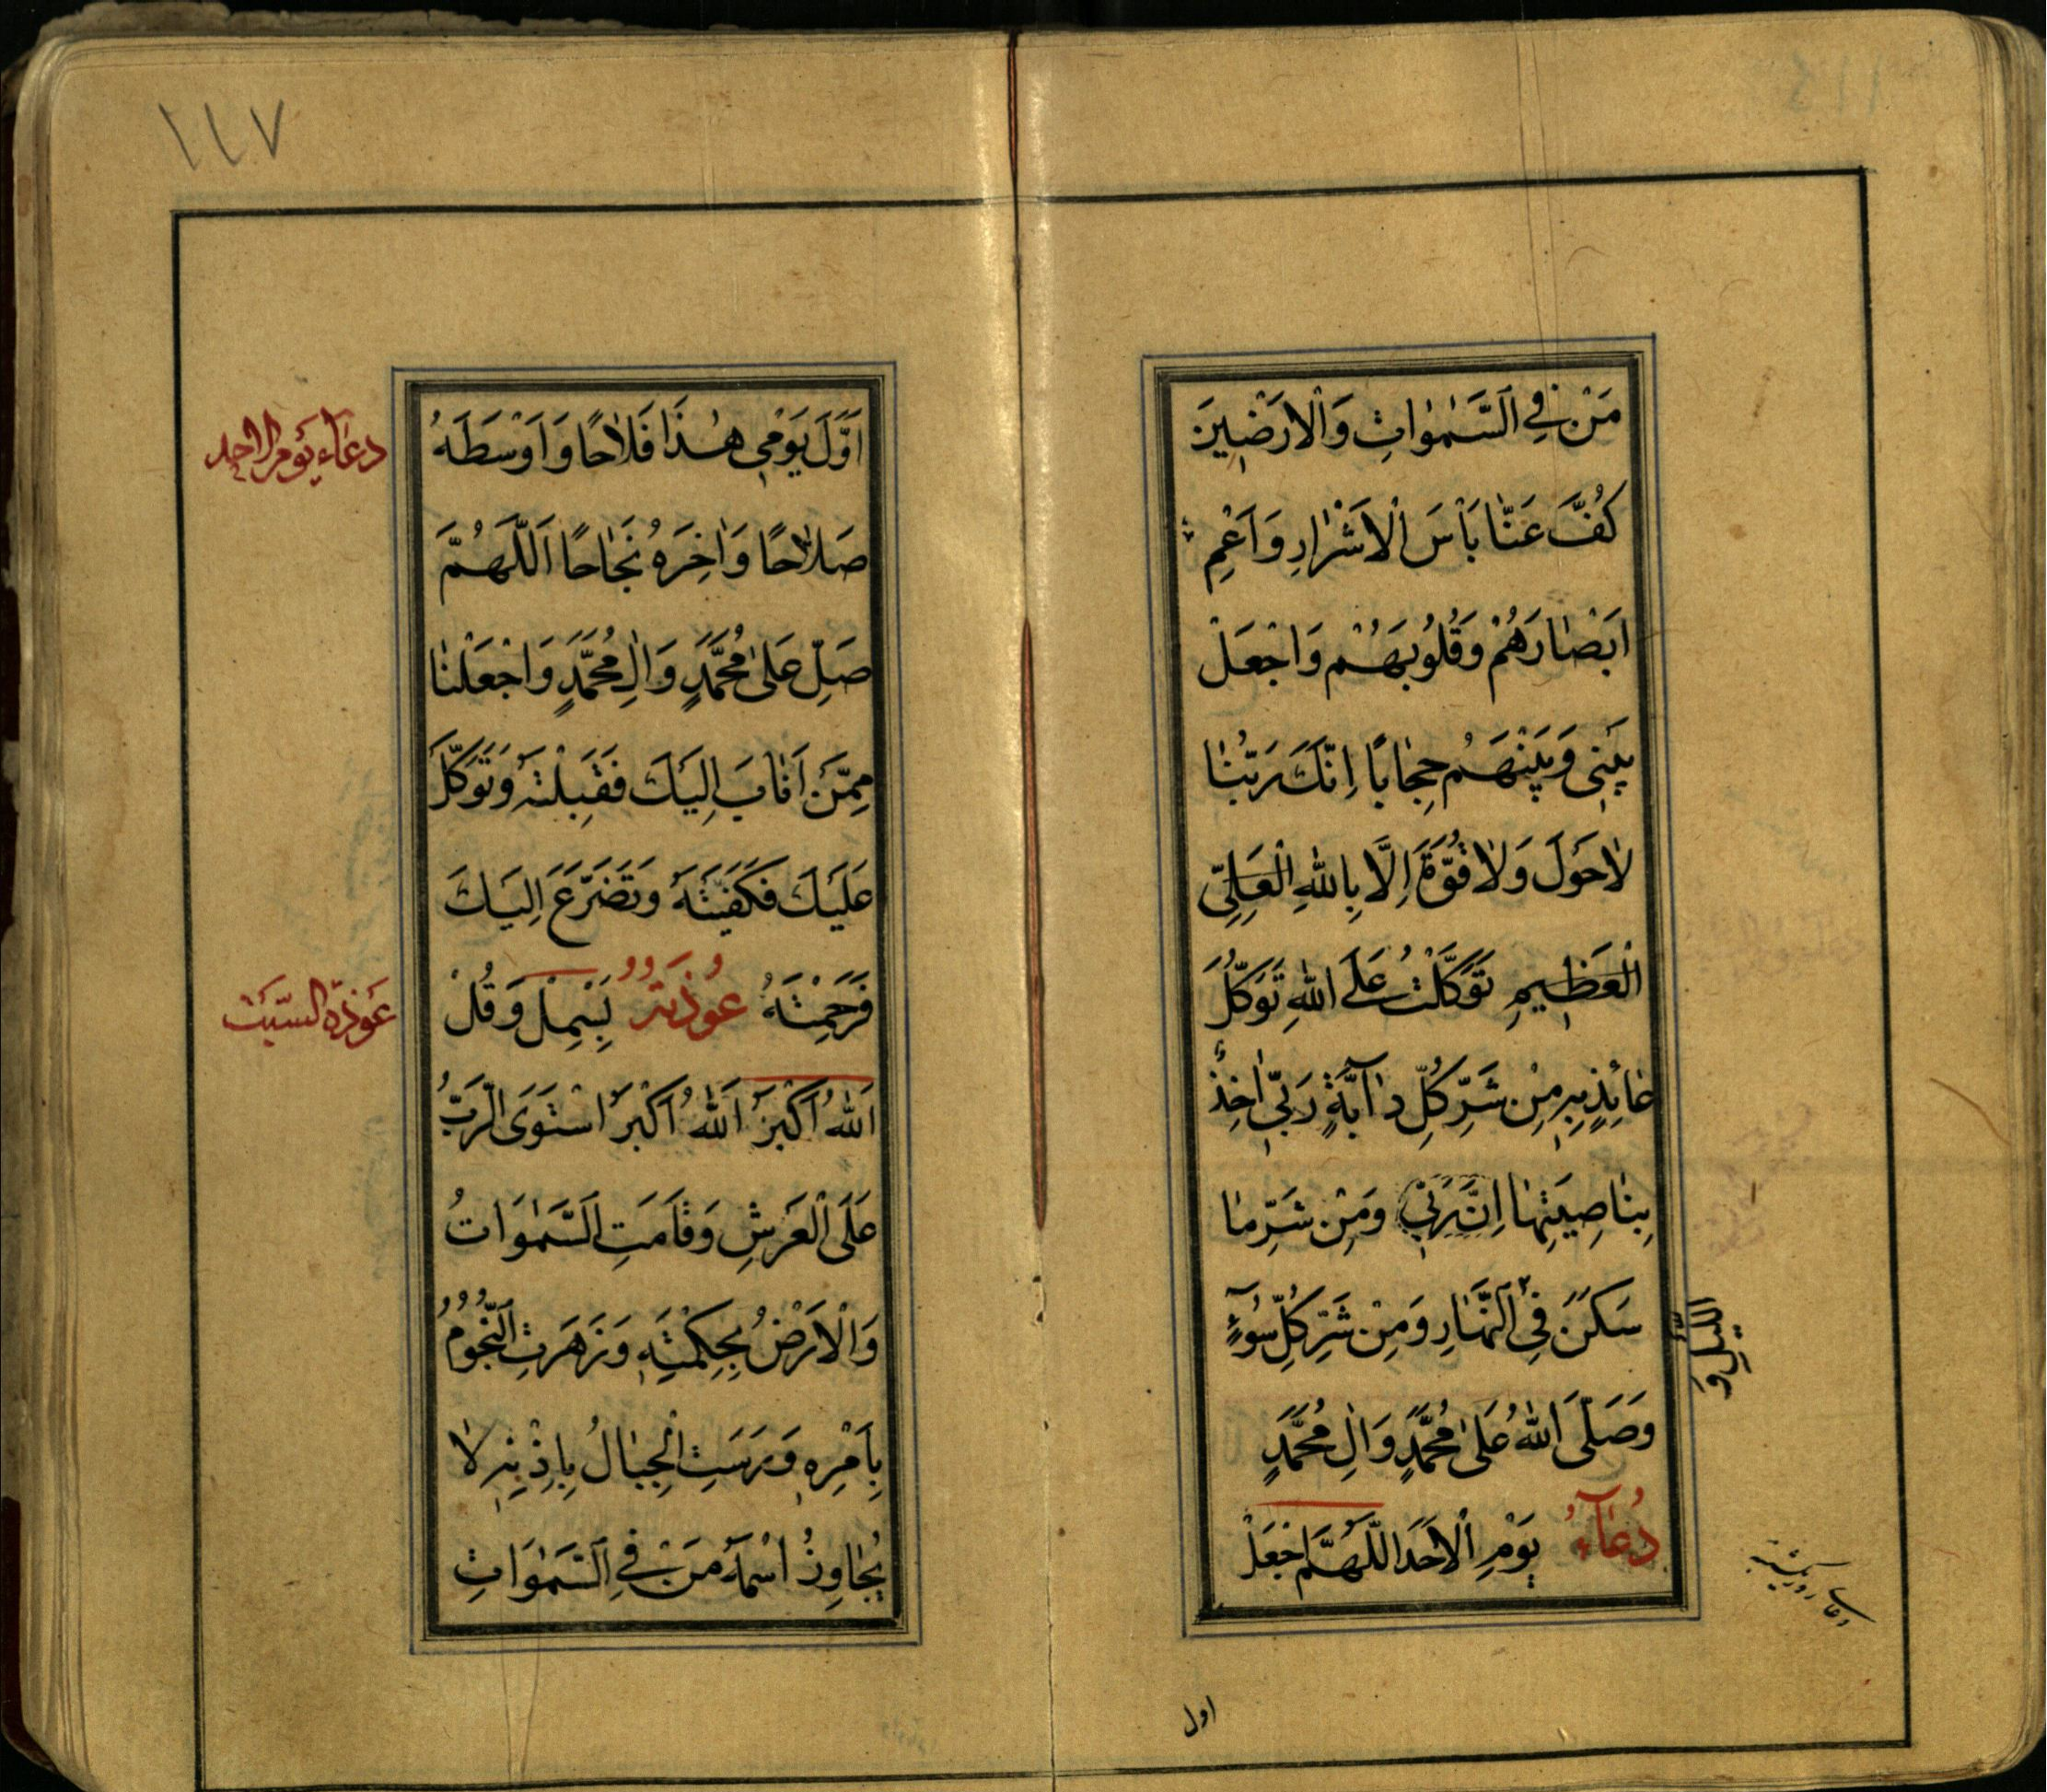 مَنْ فِي السَّمٰوٰاتِ وَالْاَرَضٖينَ
كُفَّ عَنّٰا بَاْسَ الْاَشْرٰارِ وَاَعْمِ
اَبْصٰارَهُمْ وَقُلُوبَهُمْ وَاجْعَلْ
بَيْنٖي وَبَيْنَهُمْ حِجٰابًا اِنَّكَ رَبُّنٰا
لٰا حَوْلَ وَلٰا قُوَّةَ اِلَّا بِاللّٰهِ الْعَلِيِّ
الْعَظٖيمِ تَوَكَّلْتُ عَلَى اللّٰهِ تَوَكُّلَ
عٰائِذٍ بِهٖ مِنْ شَرِّ كُلِّ دٰآبَّةٍ رَبّٖي اٰخِذٌ
بِنٰاصِيَتِهٰا اِنَّ رَبّٖي وَمِنْ شَرِّ مٰا
سَكَنَ فِي النَّهٰارِ وَمِنْ شَرِّ كُلِّ سُوٓءٍ
اللَّيْلِ وَ
وَصَلَّى اللّٰهُ عَلٰى مُحَمَّدٍ وَاٰلِ مُحَمَّدٍ
دُعٰآءُ يَوْمِ الْاَحَدِ اَللّٰهُمَّ اجْعَلْ
دعای روز یکشنبه
اول
١١٧
دعاء يوم الاحد
اَوَّلَ يَوْمٖي هٰذَا فَلٰاحًا وَاَوْسَطَهُ
صَلٰاحًا وَاٰخِرَهُ نَجٰاحًا اَللّٰهُمَّ
صَلِّ عَلٰى مُحَمَّدٍ وَاٰلِ مُحَمَّدٍ وَاجْعَلْنٰا
مِمَّنْ اَنٰابَ اِلَيْكَ فَقَبِلْتَهُ وَتَوَكَّلَ
عَلَيْكَ فَكَفَيْتَهُ وَتَضَرَّعَ اِلَيْكَ
فَرَحِمْتَهُ عُوذَتُهُ بَسْمِلْ وَقُلْ
عوذة السبت
اَللّٰهُ اَكْبَرُ اَللّٰهُ اَكْبَرُ اسْتَوَى الرَّبُّ
عَلَى الْعَرْشِ وَقٰامَتِ السَّمٰوَاتُ
وَالْاَرْضُ بِحِكْمَتِهٖ وَزَهَرَتِ النُّجُومُ
بِاَمْرِهٖ وَرَسَتِ الْجِبٰالُ بِاِذْنِهٖ لٰا
يُجٰاوِزُ اسْمَهُ مَنْ فِي السَّمٰوَاتِ